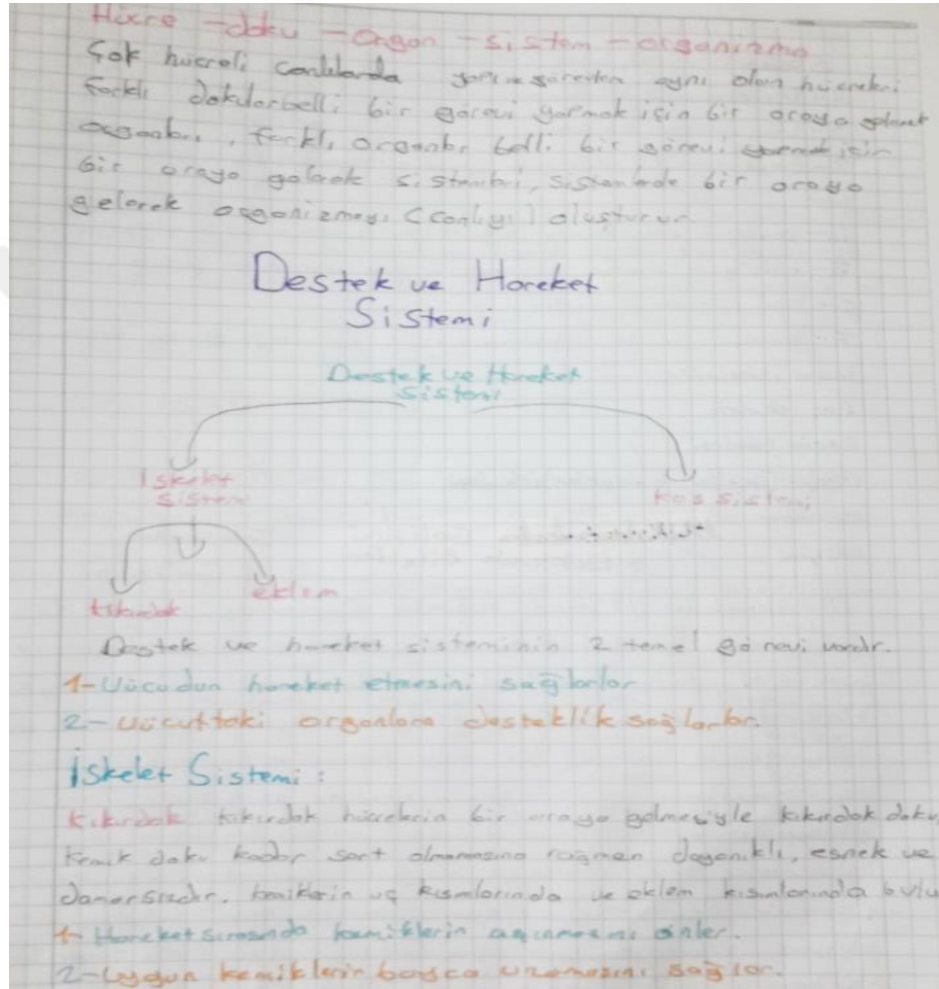 Hücre - doku - organ - sistem - organizma
Çok hücreli canlılarda yapı ve görevleri aynı olan hücreleri
farklı dokular belli bir görevi yapmak için bir araya gelerek
organları, farklı organlar belli bir görevi yapmak için
bir araya gelerek sistemleri, sistemlerde bir araya
gelerek organizmayı (canlıyı) oluşturur.
Destek ve Hareket
Sistemi
Destek ve Hareket
Sistemi
İskelet
Sistemi
Kas Sistemi
kıkırdak
eklem
Destek ve hareket sisteminin 2 temel görevi vardır.
1- Vücudun hareket etmesini sağlarlar
2- Vücuttaki organlara desteklik sağlarlar.
İskelet Sistemi:
Kıkırdak kıkırdak hücrelerin bir araya gelmesiyle kıkırdak doku
Kemik doku kadar sert olmamasına rağmen dayanıklı, esnek ve
damarsızdır. kemiklerin uç kısımlarında ve eklem kısımlarında bulu
1- Hareket sırasında kemiklerin aşınmasını önler.
2- kemiklerin boyca uzamasını sağlar.